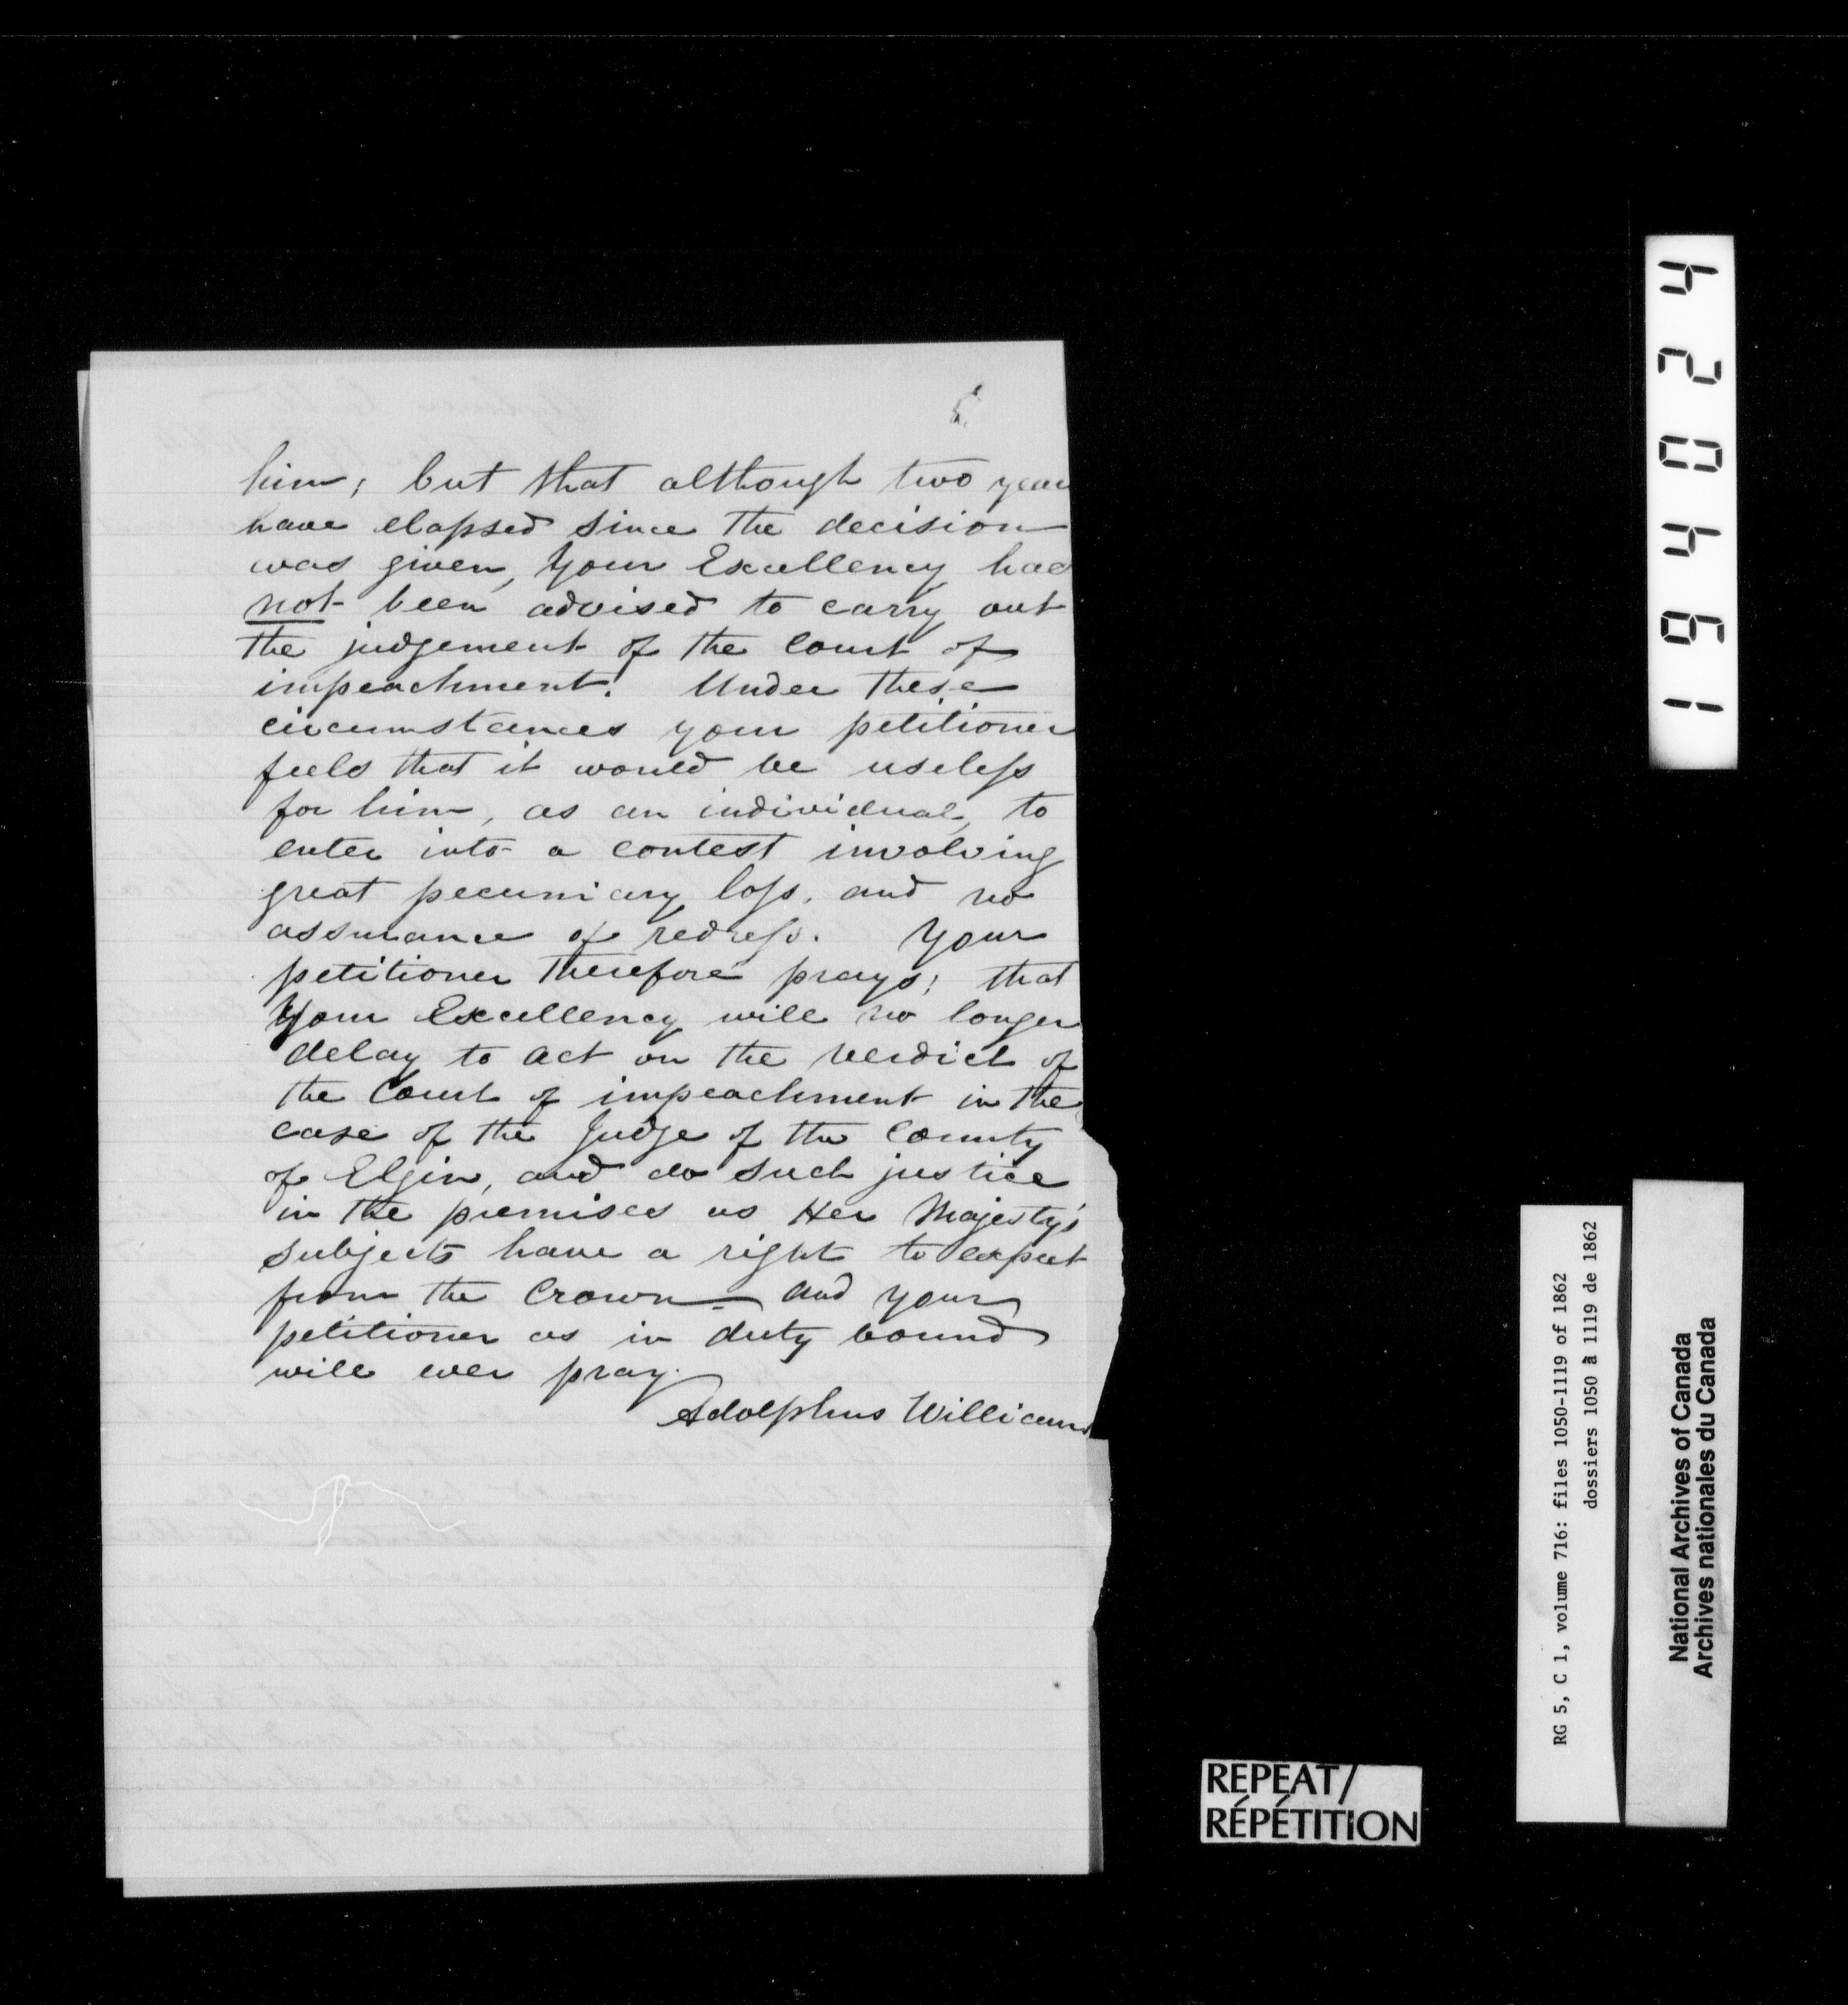 him; but that although two year
have elapsed since the decision
was given, Your Excellency had
not been advised to carry out
the judgement of the Court of
impeachment. Under these
circumstances your petitioner
feels that it would be useless
for him, as an individual, to
enter into a contest involving
great pecuniary loss, and no
assurance of redress. Your
petitioner therefore prays; that
Your Excellency will no longer
delay to act on the verdict of
the Court of impeachment in the
case of the Judge of the County
of Elgin, and do such justice
in the premises as Her Majesty's
subjects have a right to expect
from the Crown - and your
petitioner as in duty bound
will ever pray.
Adolphus Williams
REPEAT/
RÉPÉTITION
RG 5, C 1, volume 716: files 1050-1119 of 1862
dossiers 1050 à 1119 de 1862
National Archives of Canada
Archives nationales du Canada
1 9 4 0 2 4